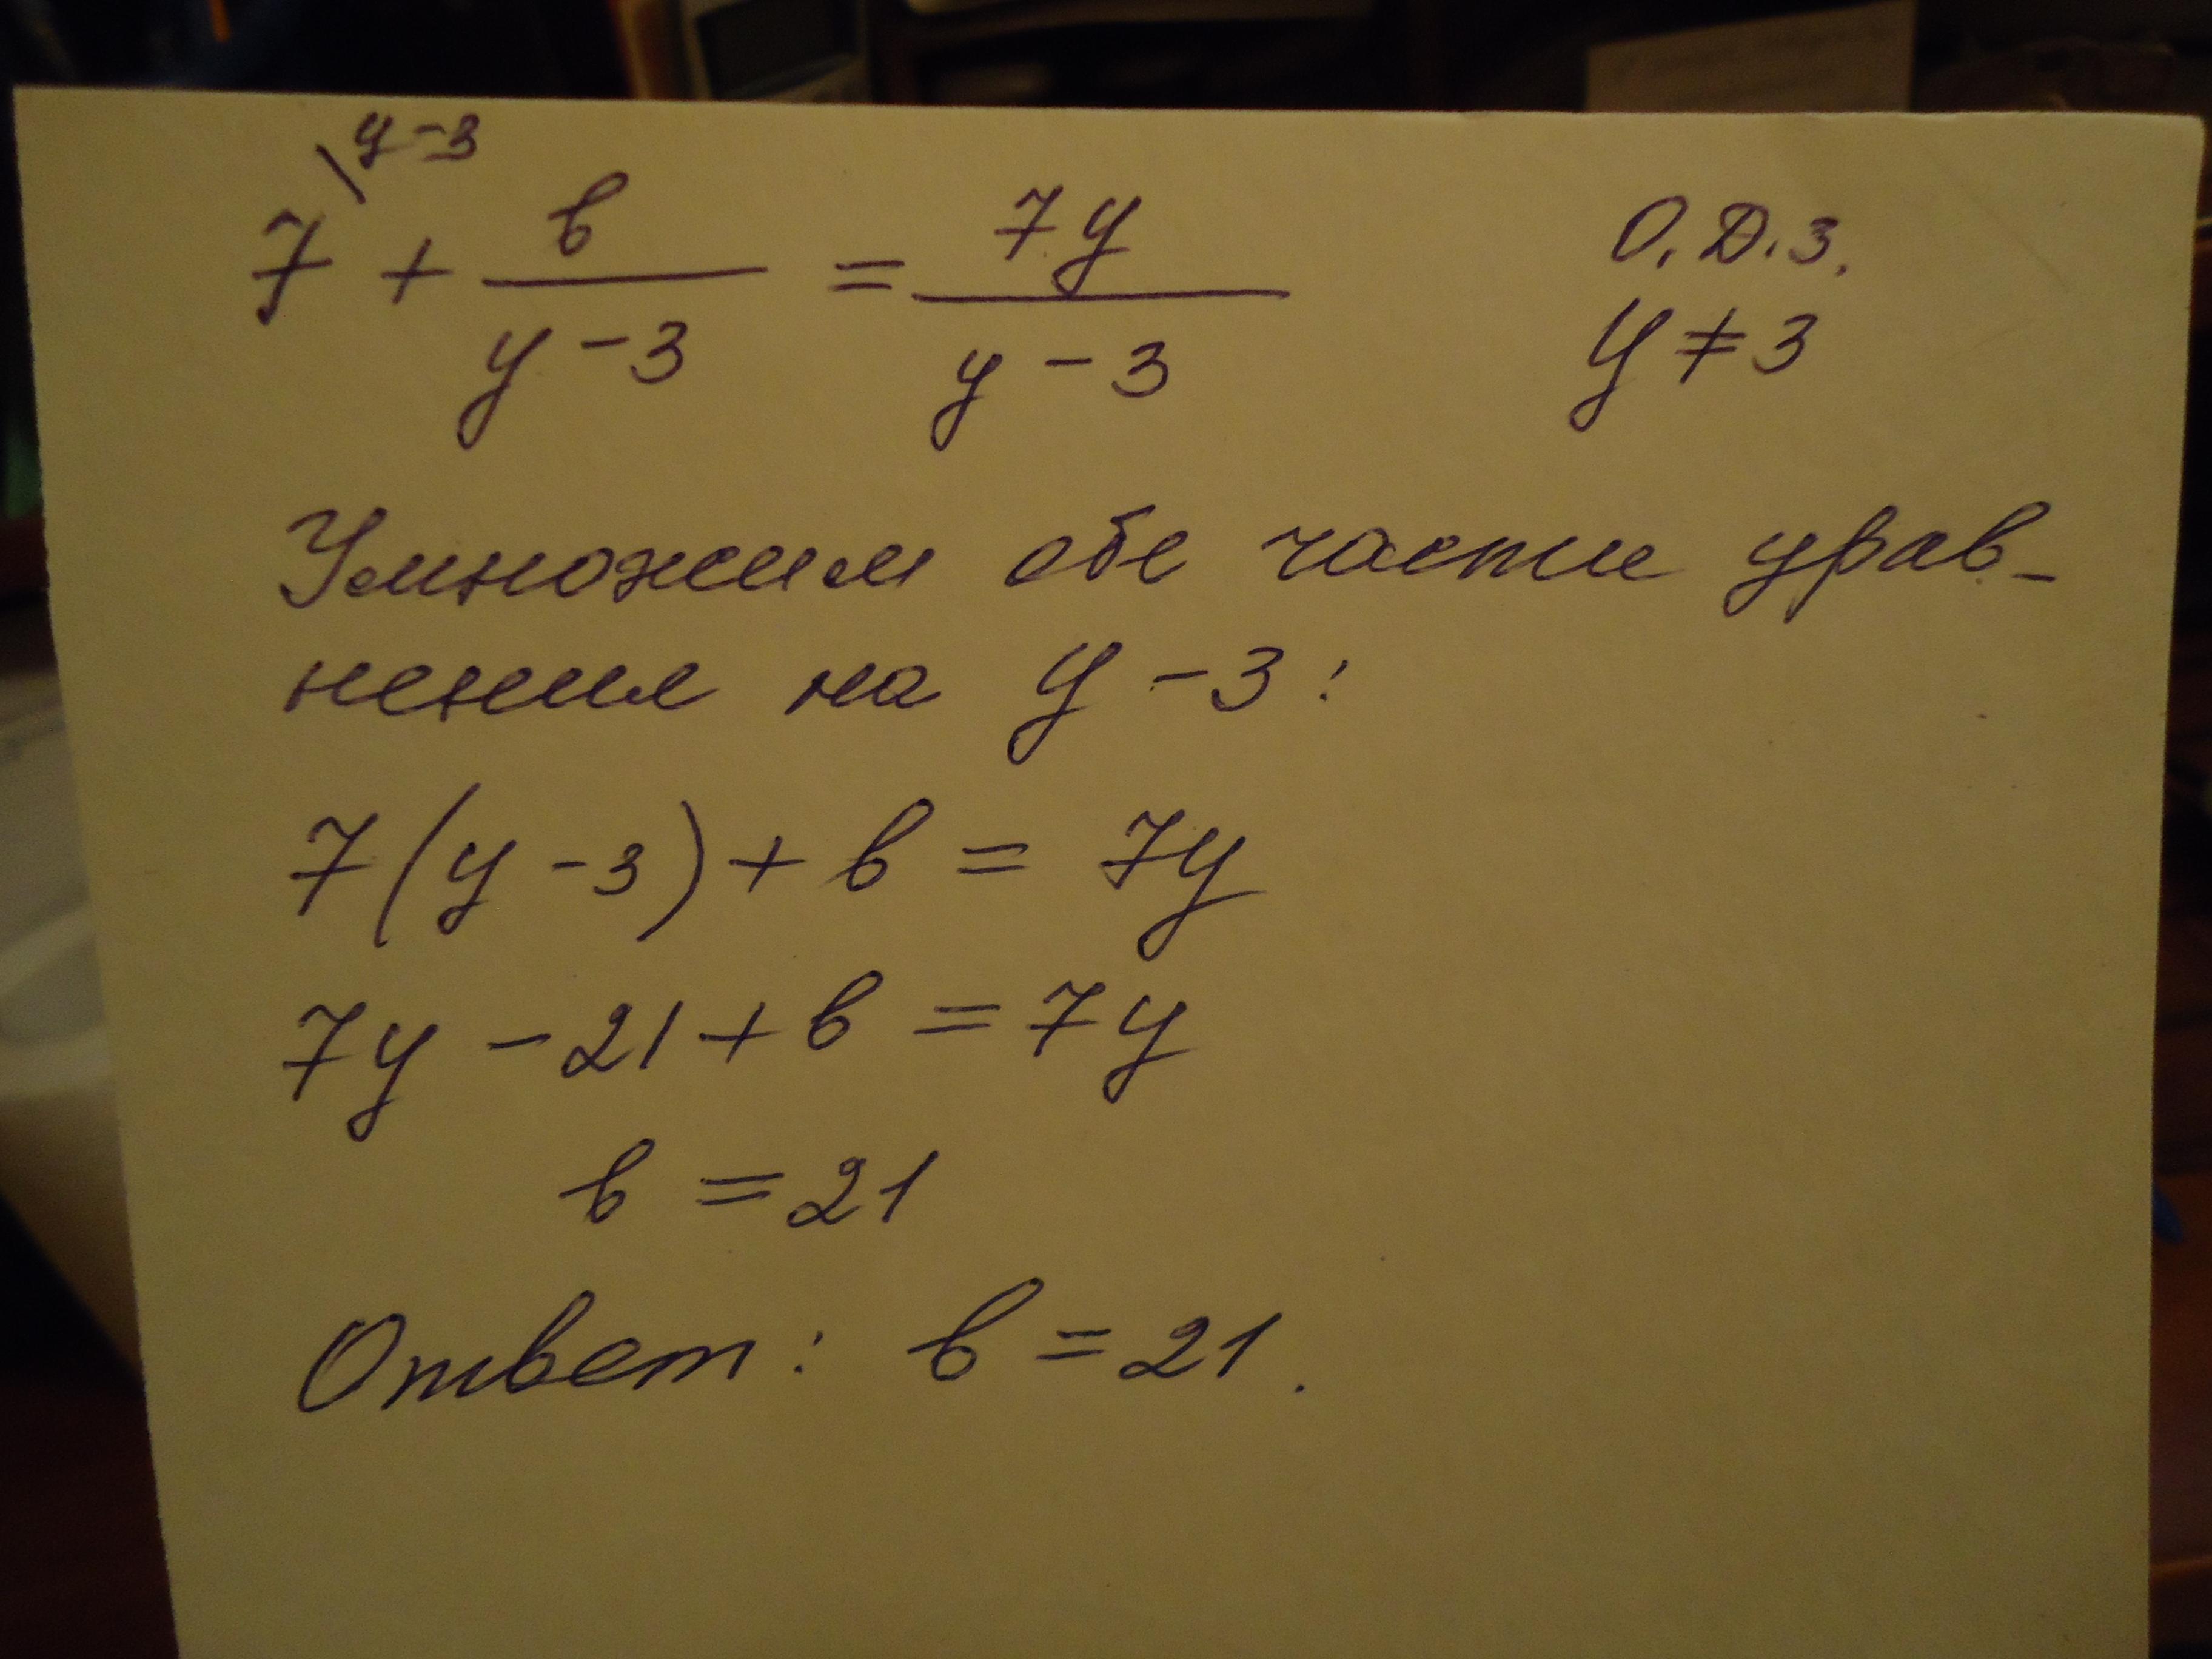 \y-3
7 + в/(y-3) = 7y/(y-3)
О.Д.З.
y ≠ 3
Умножим обе части урав-
нения на y-3:
7(y-3) + в = 7y
7y - 21 + в = 7y
в = 21
Ответ: в = 21.